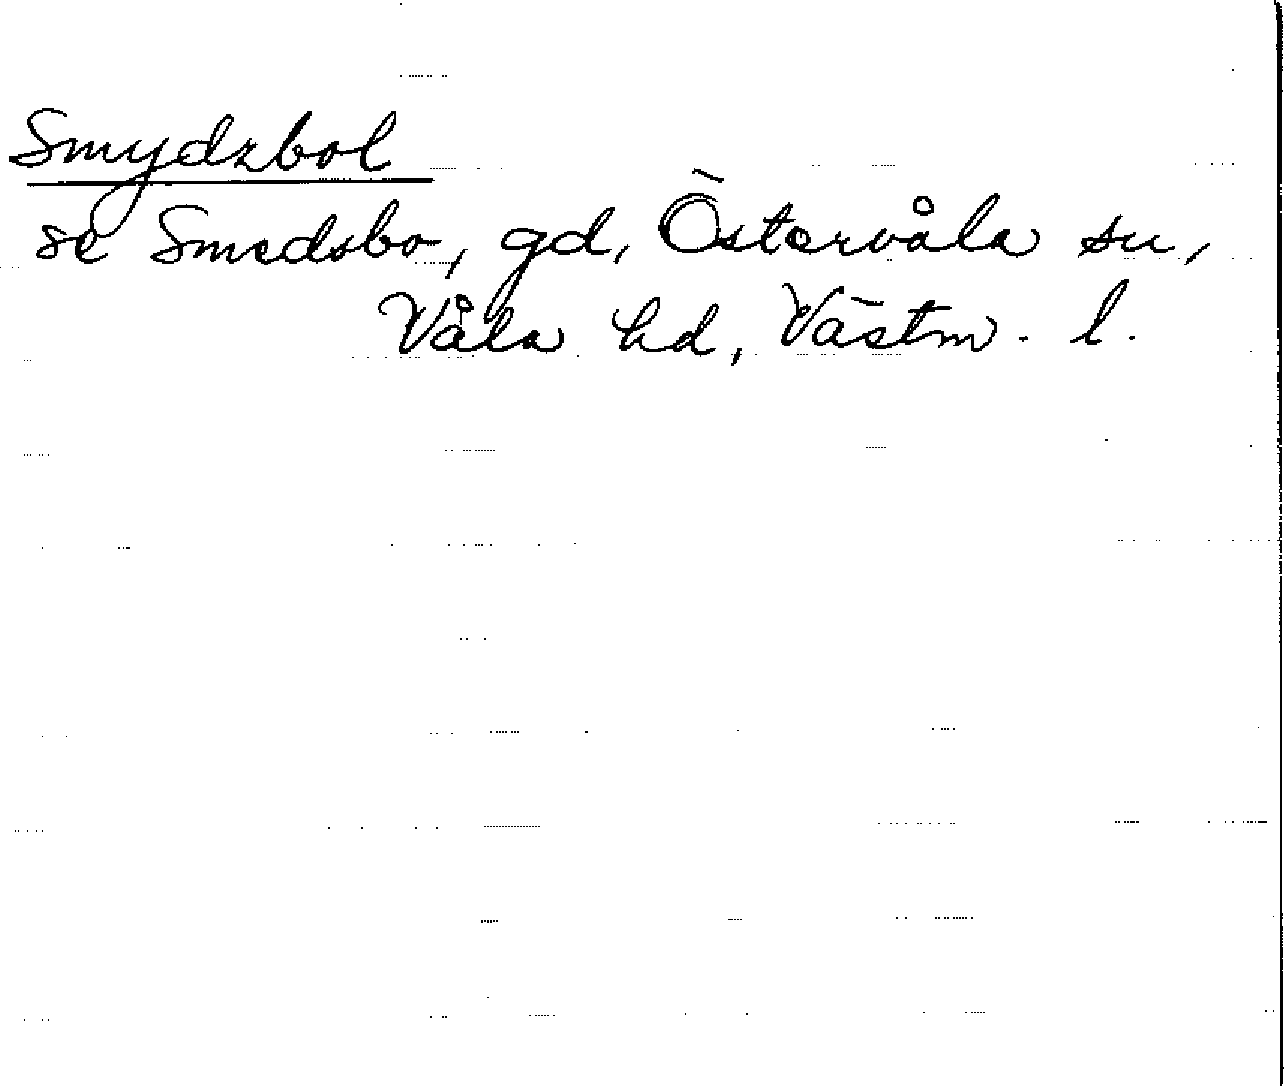 Smydzbol
se Smedsbo, gd, Östervåla sn,
Våla hd, Västm. l.